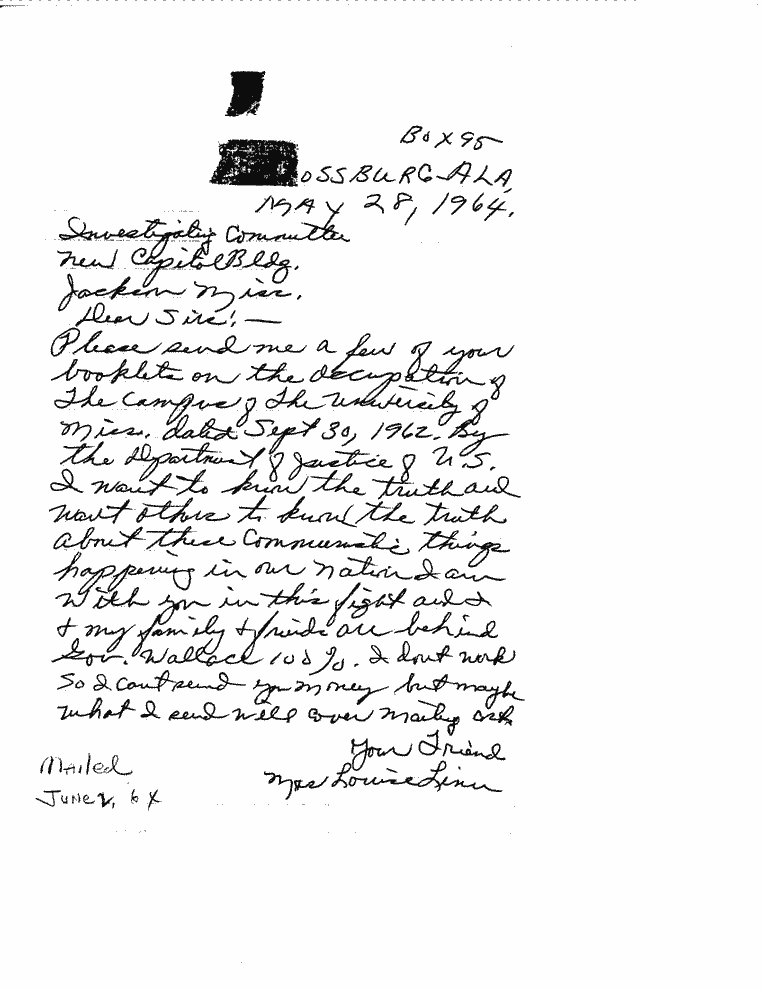 Box 95
OSSBURG-ALA,
MAY 28, 1964.
Investigating Committee
New Capitol Bldg.
Jackson Miss.
Dear Sirs! —
Please send me a few of your
booklets on the occupation of
The Campus of The University of
Miss. dated Sept 30, 1962. By
the department of Justice of U.S.
I want to know the truth and
want others to know the truth
about these Communistic things
happening in our nation I am
with you in this fight and I
+ my family + friends are behind
Gov. Wallace 100%. I dont work
So I cant send you money but maybe
what I send will cover mailing
Your Friend
Mrs Louise Linn
Mailed
June 2, 64